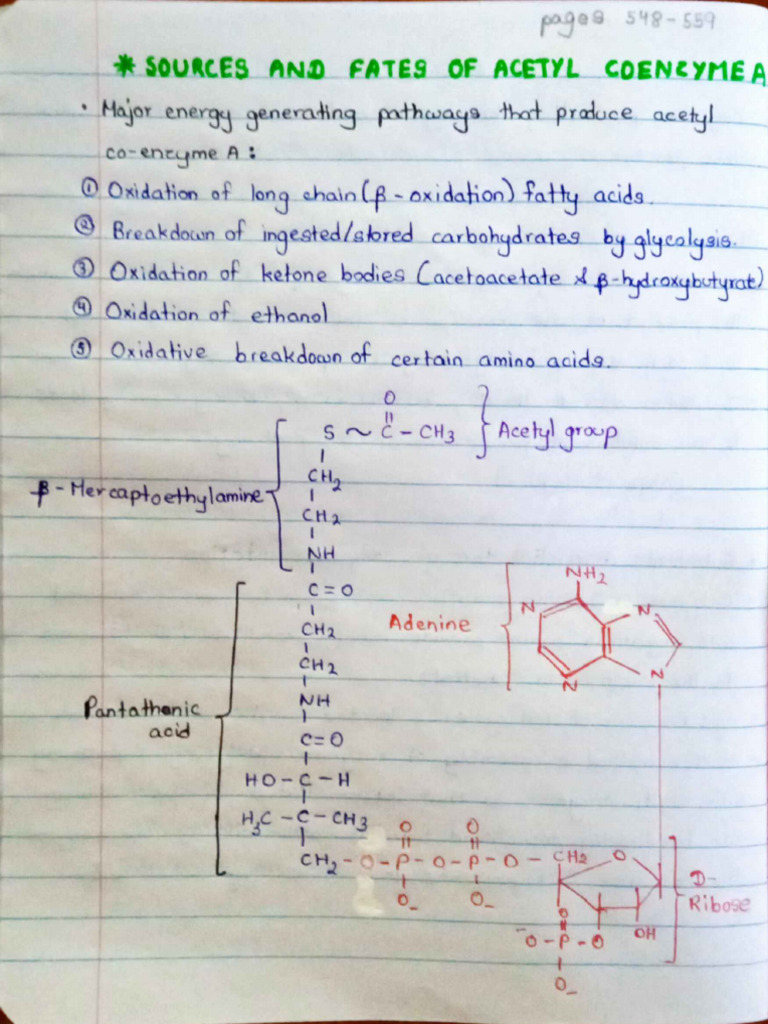 pages 548-559
* SOURCES AND FATES OF ACETYL COENZYME A
• Major energy generating pathways that produce acetyl
co-enzyme A:
① Oxidation of long chain (β-oxidation) fatty acids.
② Breakdown of ingested/stored carbohydrates by glycolysis.
③ Oxidation of ketone bodies (acetoacetate & β-hydroxybutyrat)
④ Oxidation of ethanol
⑤ Oxidative breakdown of certain amino acids.
O
S ~ C - CH3 Acetyl group
CH2
β-Mercaptoethylamine
CH2
NH
C=O
NH2
Adenine
N N
N N
CH2
CH2
NH
Pantathenic
acid
C=O
HO-C-H
H3C-C-CH3
O O
CH2-O-P-O-P-O-CH2 O
O- O-
D-
Ribose
O
-O-P-O OH
O-